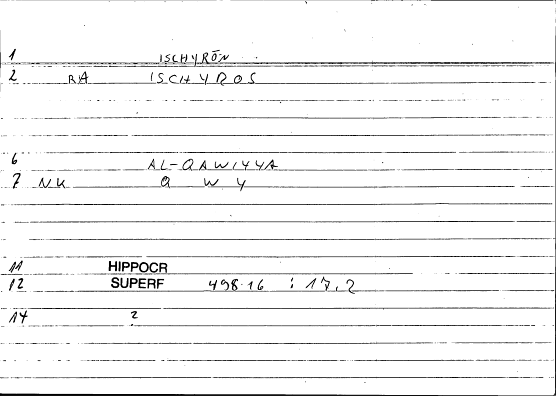 1 ISCHYRŌN
2 RA ISCHYROS
6 AL-QAWIYYA
7 NK Q W Y
11 HIPPOCR
12 SUPERF 498.16 : 17.2
14 2